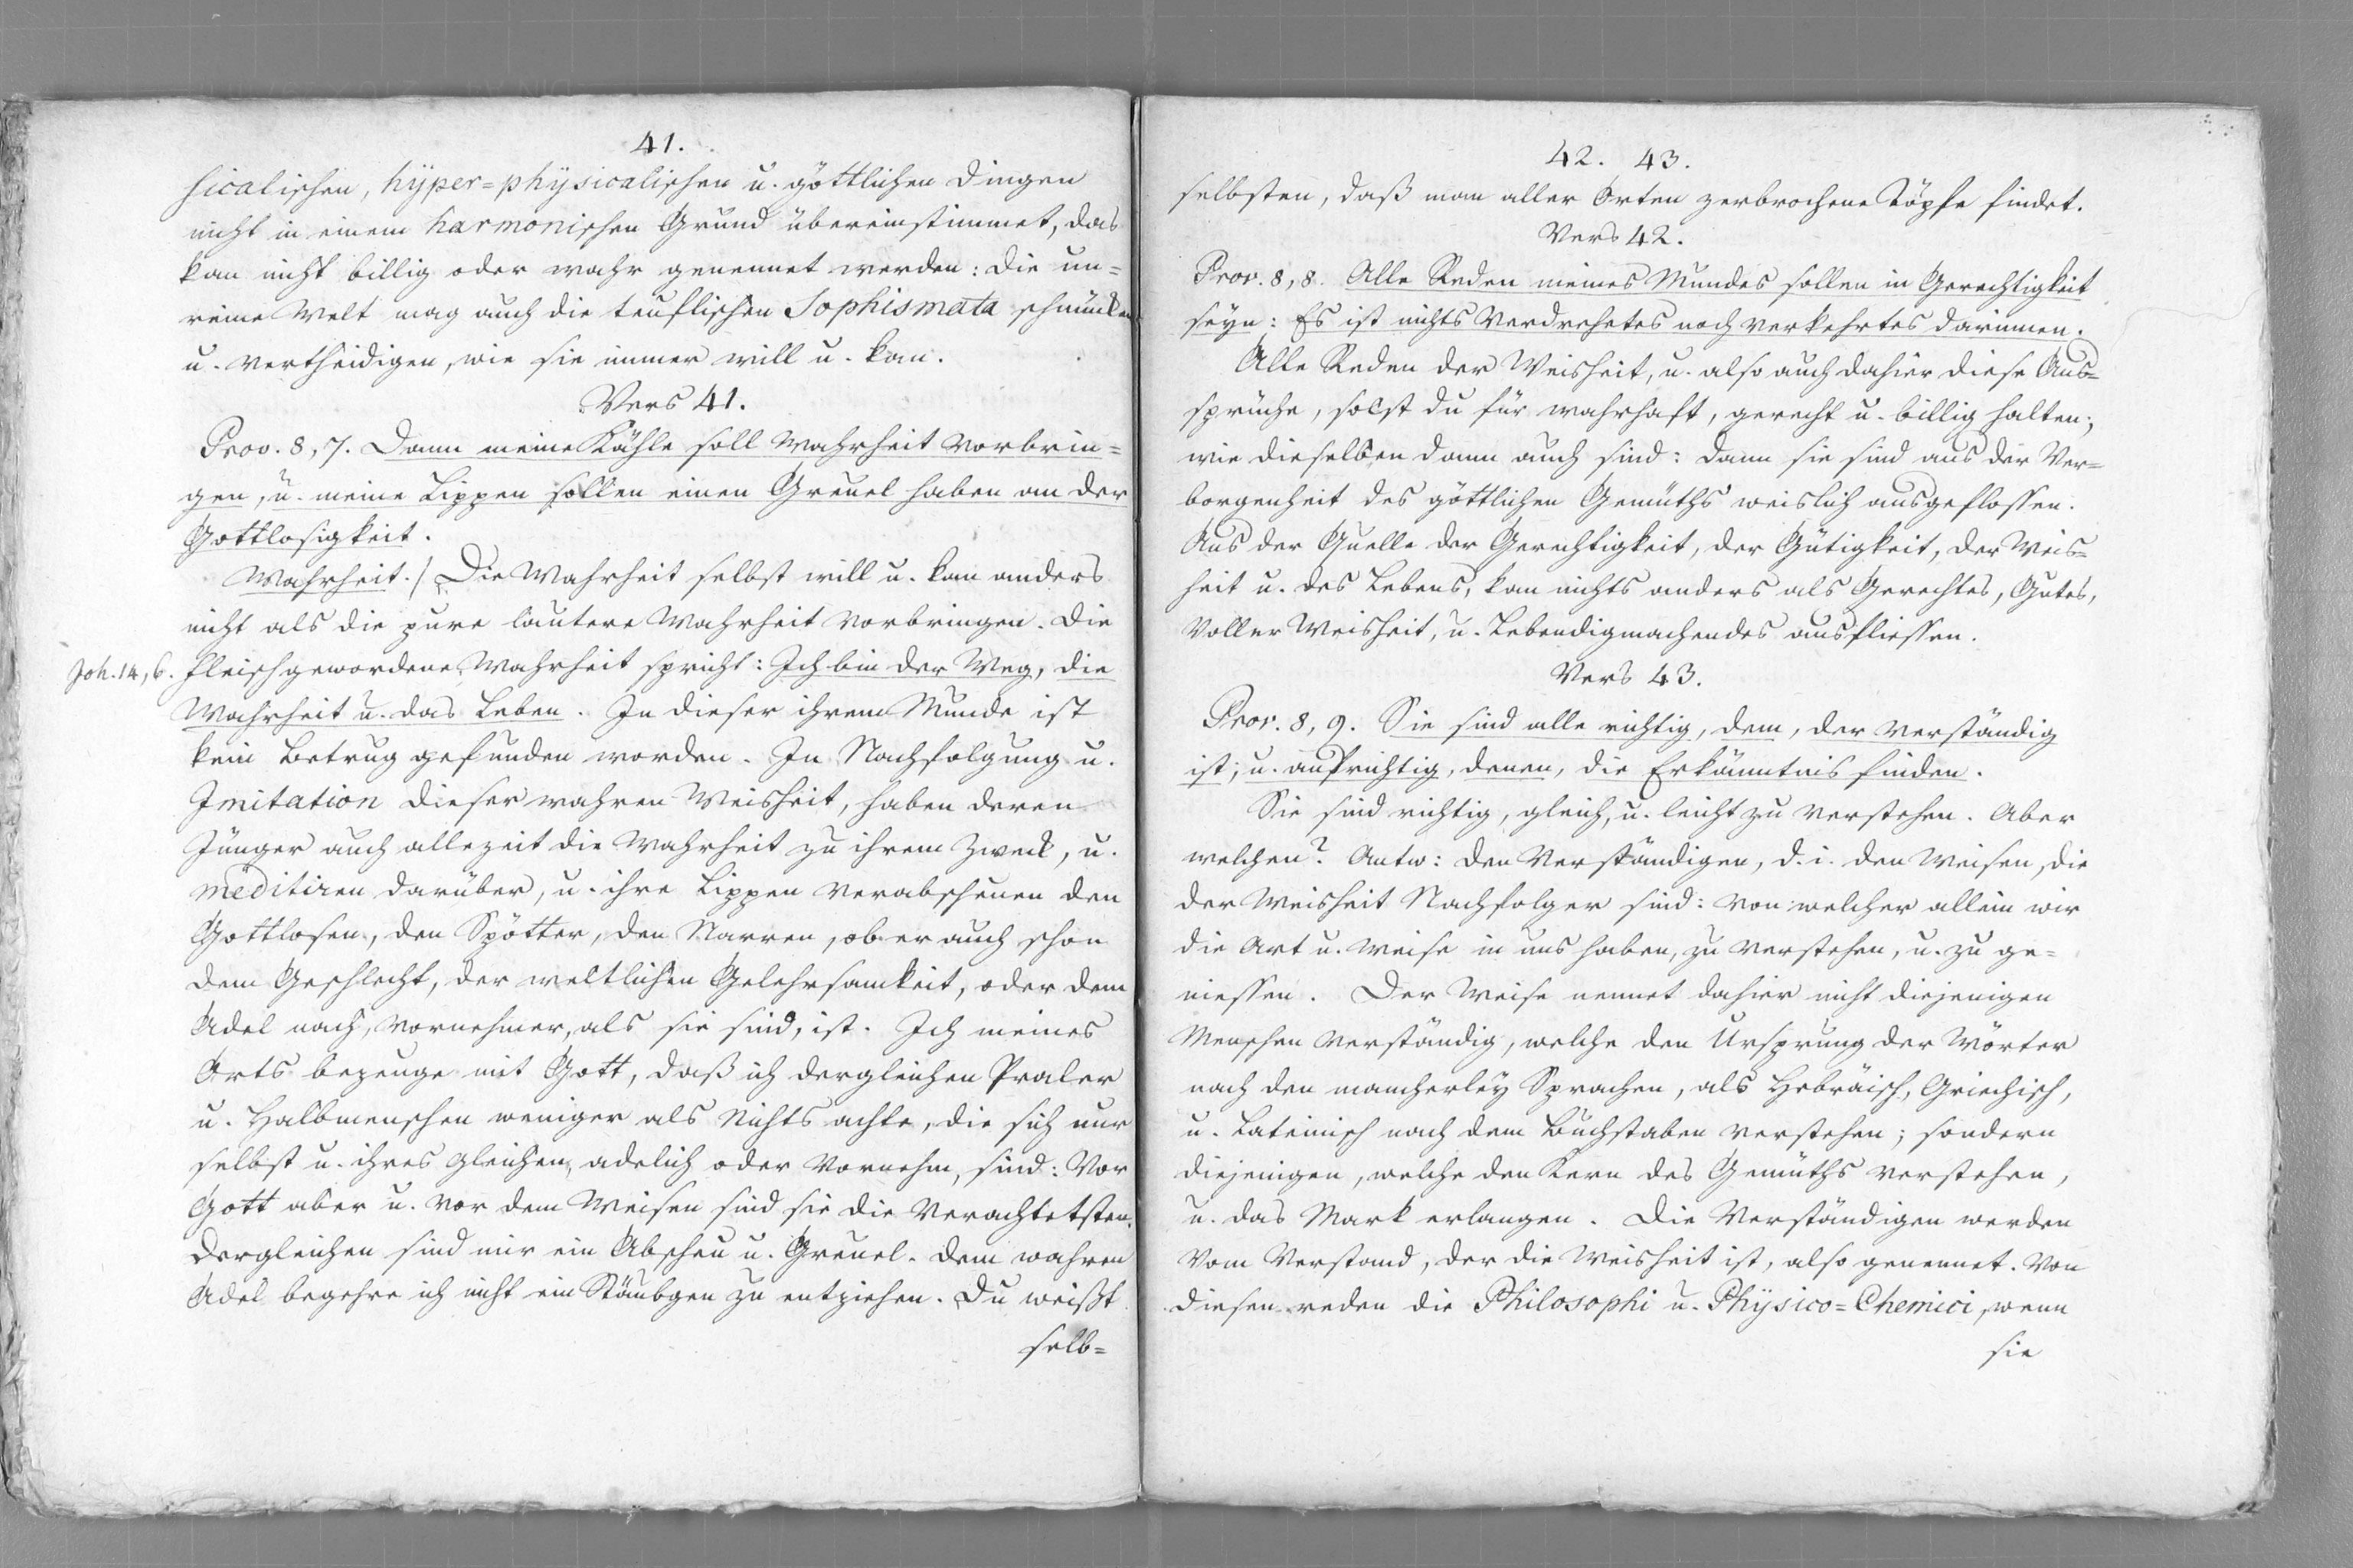 41.
sicalischen, hÿper=phÿsicalischen u. göttlichen Dingen
nicht in einem harmonischen Grund übereinstimmet, das
kan nicht billig oder wahr genennet werden: die un=
reine Welt mag auch die teuflischen Sophismata schmücken
u. vertheidigen, wie sie immer will u. kan.
Vers 41.
Prov. 8, 7. Dann meine Kähle soll Wahrheit vorbrin=
gen, u. meine Lippen sollen einen Greuel haben an der
Gottlosigkeit.
Wahrheit./ Die Wahrheit selbst will u. kan anders
nicht als die pure lautere Wahrheit vorbringen. Die
Joh. 14, 6. fleischgewordene Wahrheit spricht: Ich bin der Weg, die
Wahrheit u. das Leben. In dieser ihrem Munde ist
kein Betrug gefunden worden. In Nachfolgung u.
Imitation dieser wahren Weisheit, haben deren
Jünger auch allezeit die Wahrheit zu ihrem Zweck, u.
meditiren darüber, u. ihre Lippen verabscheuen den
Gottlosen, den Spötter, den Narren, ob er auch schon
dem Geschlecht, der weltlichen Gelehrsamkeit, oder dem
Adel nach, vornehmer, als sie sind, ist. Ich meines
Orts bezeuge mit Gott, daß ich dergleichen Praler
u. Halbmenschen weniger als Nichts achte, die sich nur
selbst u. ihres gleichen, adelich oder vornehm, sind: Vor
Gott aber u. vor dem Weisen sind sie die Verachtetsten.
Dergleichen sind mir ein Abscheu u. Greuel. Dem wahren
Adel begehre ich nicht ein Stäubgen zu entziehen. Du weißt
selb=
42. 43.
selbsten, daß man aller Orten zerbrochene Töpfe findet.
Vers 42.
Prov. 8, 8. Alle Reden meines Mundes sollen in Gerechtigkeit
seyn: Es ist nichts Verdrehetes noch verkehrtes darinnen.
Alle Reden der Weisheit, u. also auch dahier diese Aus=
sprüche, solst du für wahrhaft, gerecht u. billig halten;
wie dieselben dann auch sind: dann sie sind aus der Ver=
borgenheit des göttlichen Gemüths weislich ausgeflossen.
Aus der Quelle der Gerechtigkeit, der Gütigkeit, der Weis=
heit u. des Lebens, kan nichts anders als Gerechtes, Gutes,
Voller Weisheit, u. Lebendigmachendes ausfliessen.
Vers 43.
Prov. 8, 9. Sie sind alle richtig, dem, der verständig
ist; u. aufrichtig, denen, die Erkänntnis finden.
Sie sind richtig, gleich, u. leicht zu verstehen. Aber
welchen? Antw: den Verständigen, d. i. den Weisen, die
der Weisheit Nachfolger sind: von welcher allein wir
die Art u. Weise in uns haben, zu verstehen, u. zu ge=
niessen. Der Weise nennet dahier nicht diejenigen
Menschen verständig, welche den Ursprung der Wörter
nach den mancherleÿ Sprachen, als Hebräisch, Griechisch,
u. Lateinisch nach dem Buchstaben verstehen; sondern
diejenigen, welche den Kern des Gemüths verstehen,
u. das Mark erlangen. Die Verständigen werden
vom Verstand, der die Weisheit ist, also genennet. Von
diesen reden die Philosophi u. Phÿsico=Chemici, wenn
sie